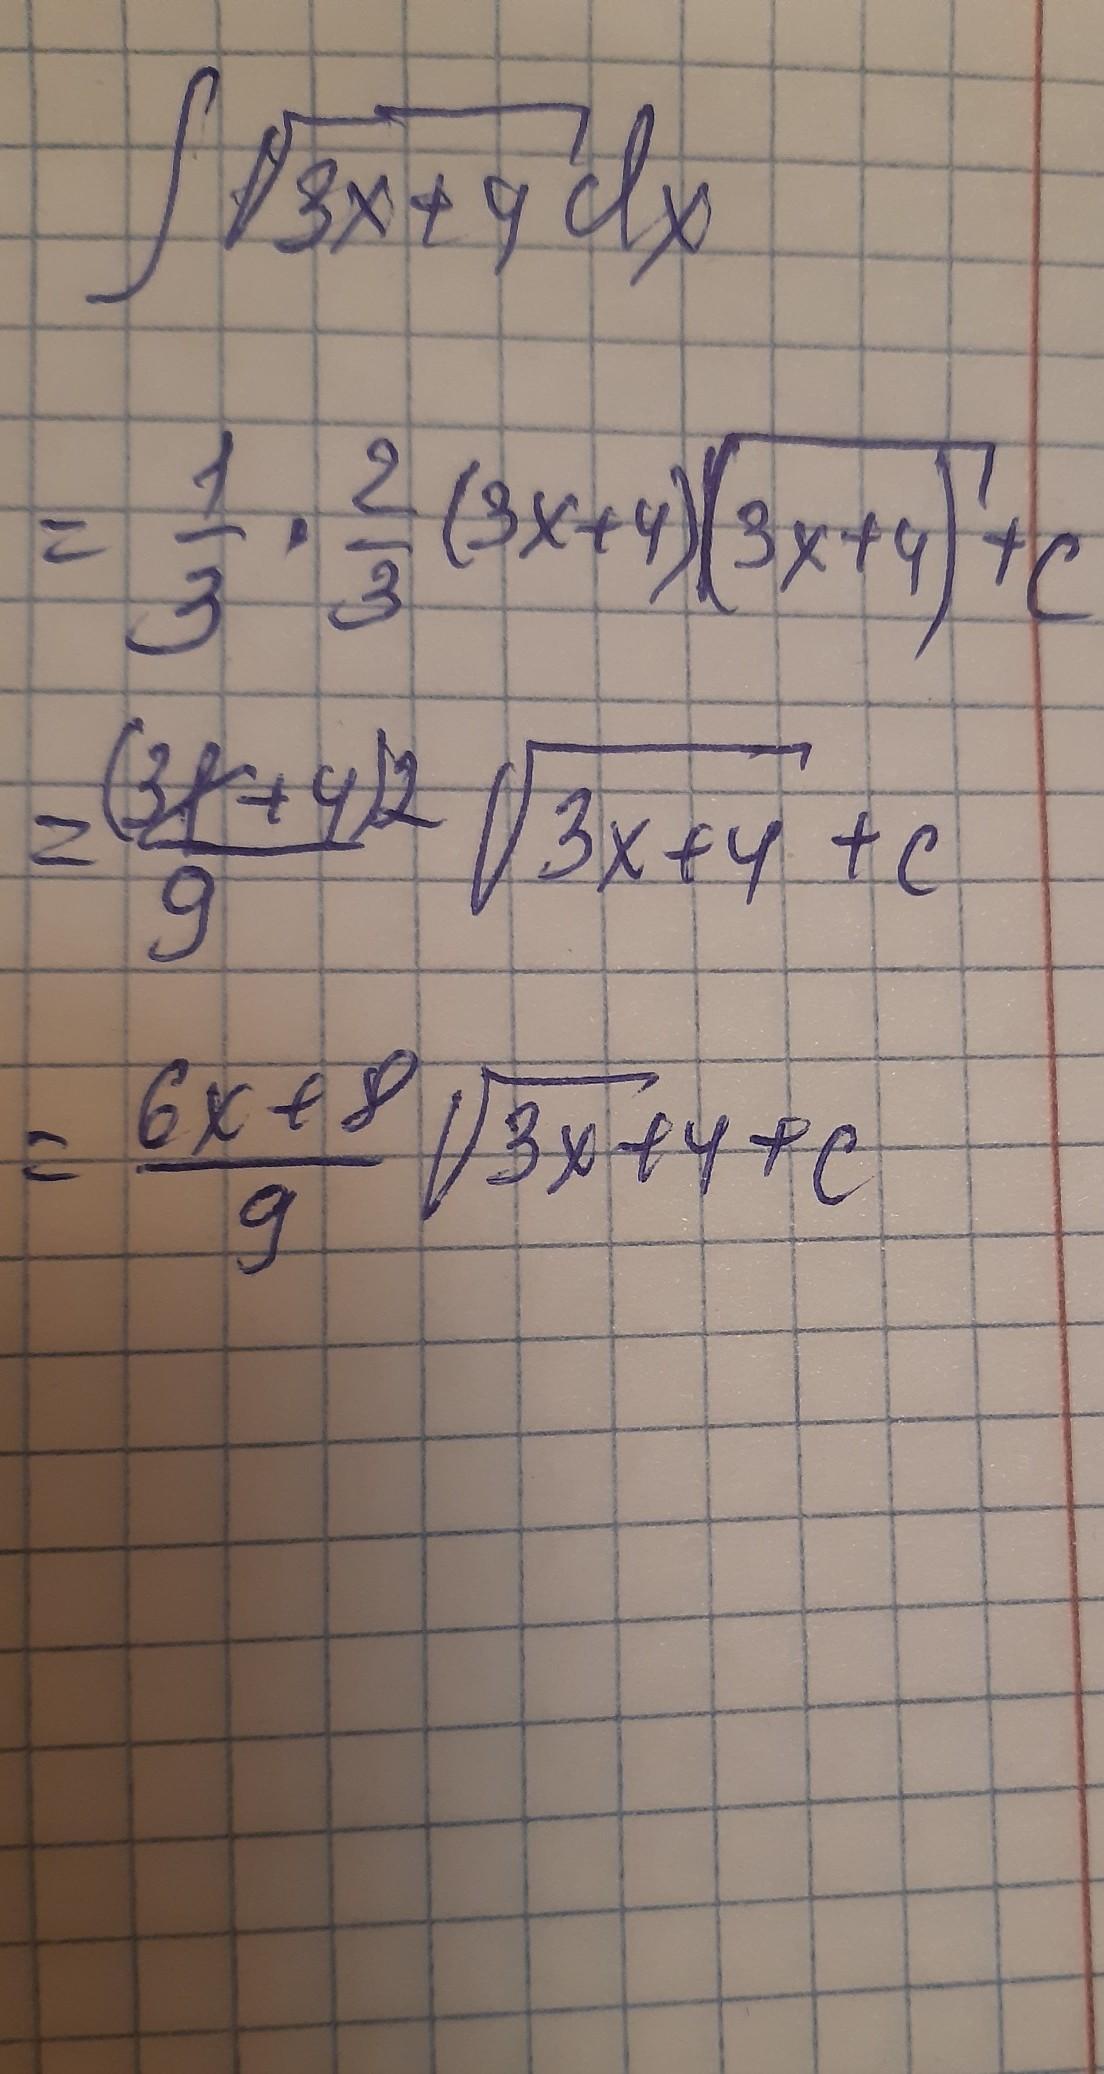 ∫ √(3x+4) dx
= 1/3 · 2/3 (3x+4) √(3x+4) + c
= (3x+4)2/9 √(3x+4) + c
= 6x+8/9 √(3x+4) + c